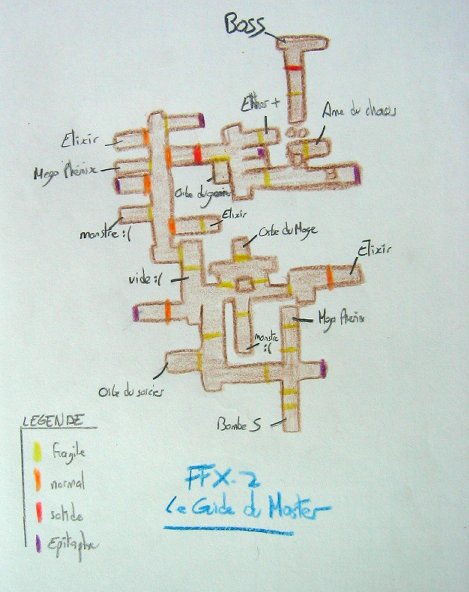 Boss
Ether +
Ame du chasses
Elixir
Mega Phénix
Orbe du guerrier
monstre :(
Elixir
Orbe du Mage
Elixir
vide :(
Mega Phénix
monstre
:(
Orbe du sorcier
Bombe S
LEGENDE
fragile
normal
solide
Epitaphe
FFX-2
Le Guide du Master